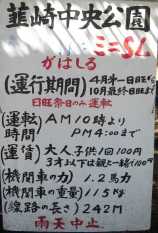 韮崎中央公園
ミニSL
がはしる
(運行期間) 4月オ一日旺〜
10月最終日旺まで
日旺祭日のみ運転
(運転) AM10時より
時間 PM4:00まで
(運賃) 大人子供1回100円
3才以下は親と一緒100円
(機関車の力) 1.2馬力
(機関車の重量) 115kg
(線路の長さ) 242M
雨天中止